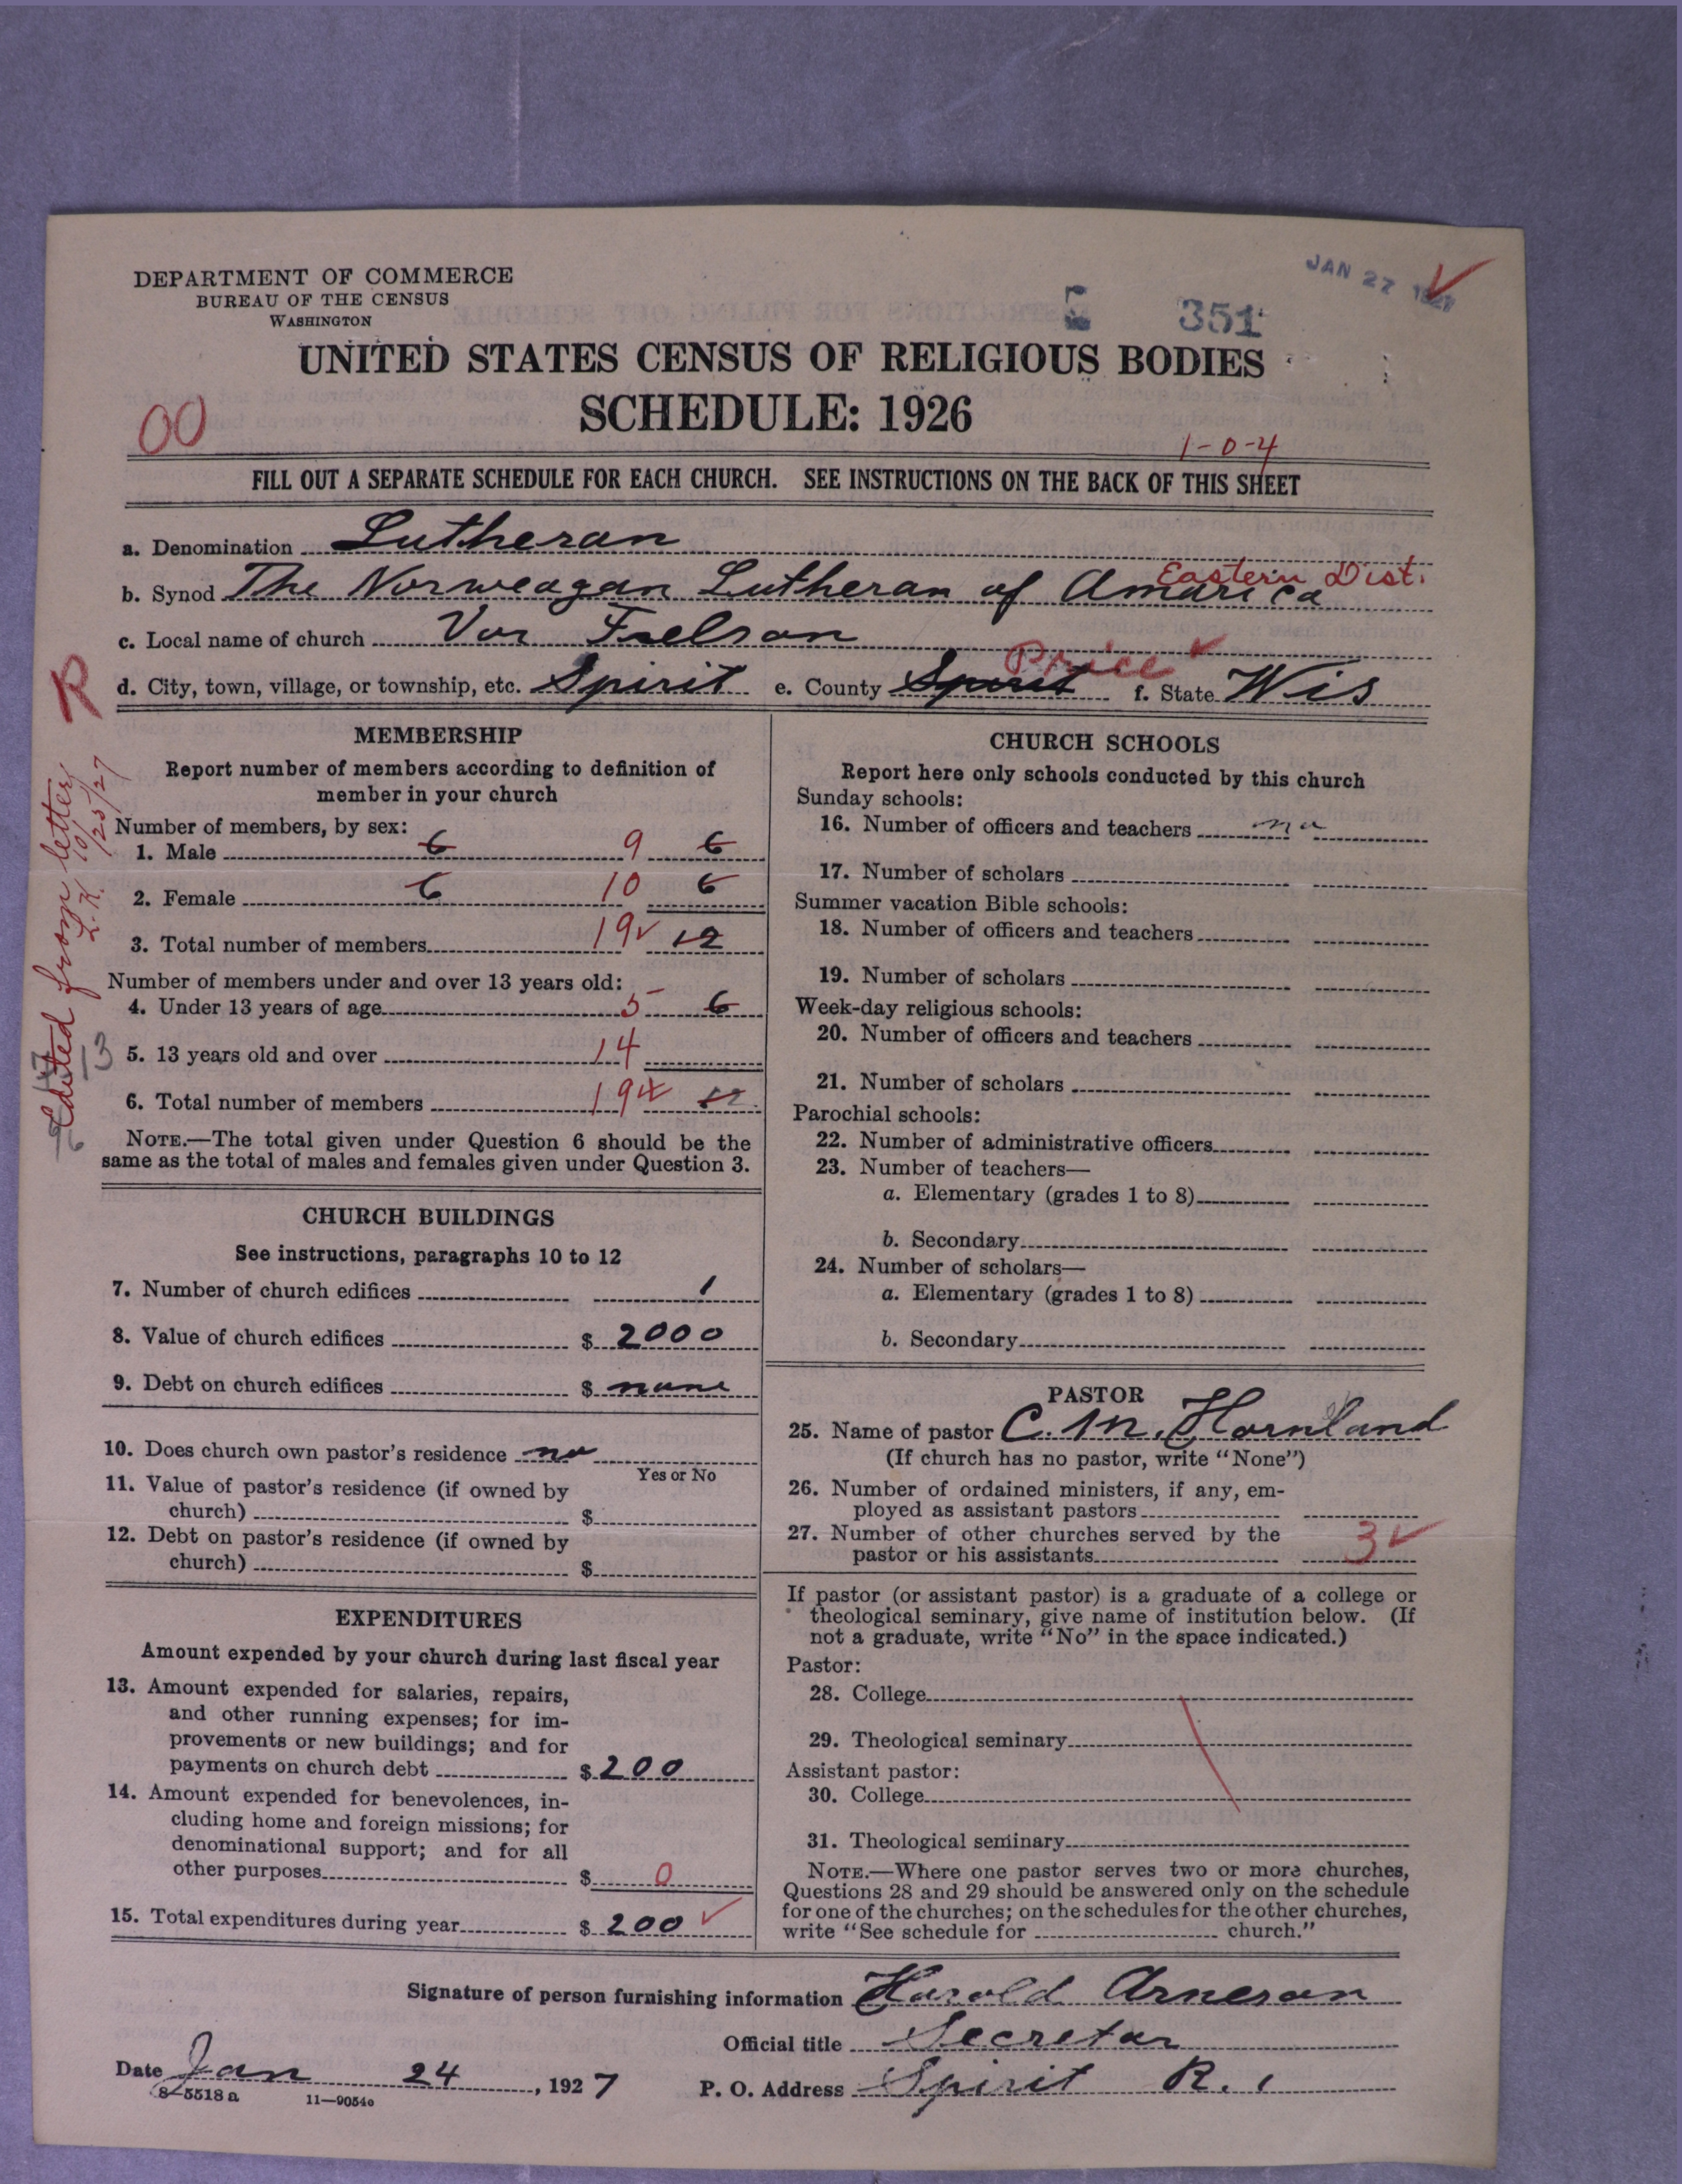 DEPARTMENT OF COMMERCE
BUREAU OF THE CENSUS
WASHINGTON
JAN 27 1927
351
UNITED STATES CENSUS OF RELIGIOUS BODIES
SCHEDULE: 1926
00
1-0-4
FILL OUT A SEPARATE SCHEDULE FOR EACH CHURCH. SEE INSTRUCTIONS ON THE BACK OF THIS SHEET
a. Denomination Lutheran
Eastern Dist.
b. Synod The Norweagan Lutheran of Amarica
c. Local name of church Vor Frelson
Price
R
d. City, town, village, or township, etc. Spirit e. County Spirit f. State Wis
Edited from letter 10/25/27
L.K.
MEMBERSHIP
Report number of members according to definition of
member in your church
Number of members, by sex:
1. Male 6 9 6
2. Female 6 10 6
3. Total number of members 19 12
Number of members under and over 13 years old:
4. Under 13 years of age 5 6
13 5. 13 years old and over 14
6. Total number of members 19 12
NOTE.—The total given under Question 6 should be the
same as the total of males and females given under Question 3.
CHURCH BUILDINGS
See instructions, paragraphs 10 to 12
7. Number of church edifices 1
8. Value of church edifices $ 2000
9. Debt on church edifices $ none
10. Does church own pastor's residence no
Yes or No
11. Value of pastor's residence (if owned by
church) $
12. Debt on pastor's residence (if owned by
church) $
EXPENDITURES
Amount expended by your church during last fiscal year
13. Amount expended for salaries, repairs,
and other running expenses; for im-
provements or new buildings; and for
payments on church debt $ 200
14. Amount expended for benevolences, in-
cluding home and foreign missions; for
denominational support; and for all
other purposes $ 0
15. Total expenditures during year $ 200
CHURCH SCHOOLS
Report here only schools conducted by this church
Sunday schools:
16. Number of officers and teachers no
17. Number of scholars
Summer vacation Bible schools:
18. Number of officers and teachers
19. Number of scholars
Week-day religious schools:
20. Number of officers and teachers
21. Number of scholars
Parochial schools:
22. Number of administrative officers
23. Number of teachers—
a. Elementary (grades 1 to 8)
b. Secondary
24. Number of scholars—
a. Elementary (grades 1 to 8)
b. Secondary
PASTOR
25. Name of pastor C. M. Hornland
(If church has no pastor, write "None")
26. Number of ordained ministers, if any, em-
ployed as assistant pastors
27. Number of other churches served by the
pastor or his assistants 3
If pastor (or assistant pastor) is a graduate of a college or
theological seminary, give name of institution below. (If
not a graduate, write "No" in the space indicated.)
Pastor:
28. College
29. Theological seminary
Assistant pastor:
30. College
31. Theological seminary
NOTE.—Where one pastor serves two or more churches,
Questions 28 and 29 should be answered only on the schedule
for one of the churches; on the schedules for the other churches,
write "See schedule for church."
Signature of person furnishing information Harold Arneson
Official title Secretar
Date Jan 24, 1927 P. O. Address Spirit R. 1
8-5518 a 11—9054o